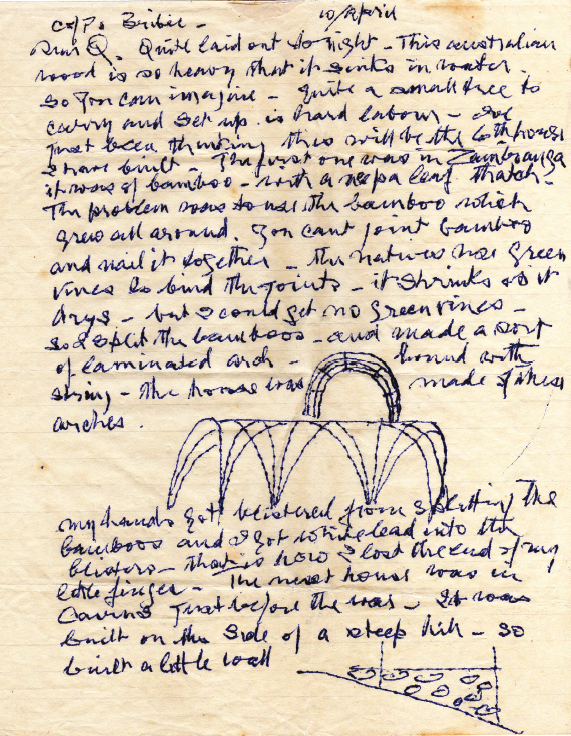 c/Po Bribie -
10/April
Dear Q. Quite laid out to night - This australian
wood is so heavy that it sinks in water.
So you can imagine - quite a small tree to
carry and set up is hard labour - I've
just been thinking this will be the 6th house
I have built - The first one was in Zamboanga
it was of bamboo - with a nepa leaf thatch -
The problem was to use the bamboo which
grew all around. You cant joint bamboo
and nail it together - the natives use green
vines to bind the joints - it shrinks as it
drys - but I could get no green vines -
so I split the bamboos - and made a sort
of laminated arch - bound with
string - the house was made of these
arches.
my hands got blistered from splitting the
bamboos and I got white lead into the
blisters - that is how I lost the end of my
little finger - The next house was in
Cairns just before the war - It was
built on the side of a steep hill - so
built a little wall